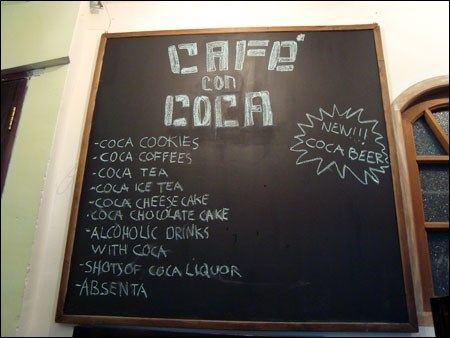 CAFé
CON
COCA
NEW!!!
COCA BEER
-COCA COOKIES
-COCA COFFEES
-COCA TEA
-COCA ICE TEA
-COCA CHEESECAKE
-COCA CHOCOLATE CAKE
-ALCOHOLIC DRINKS
WITH COCA
-SHOTS OF COCA LIQUOR
-ABSENTA